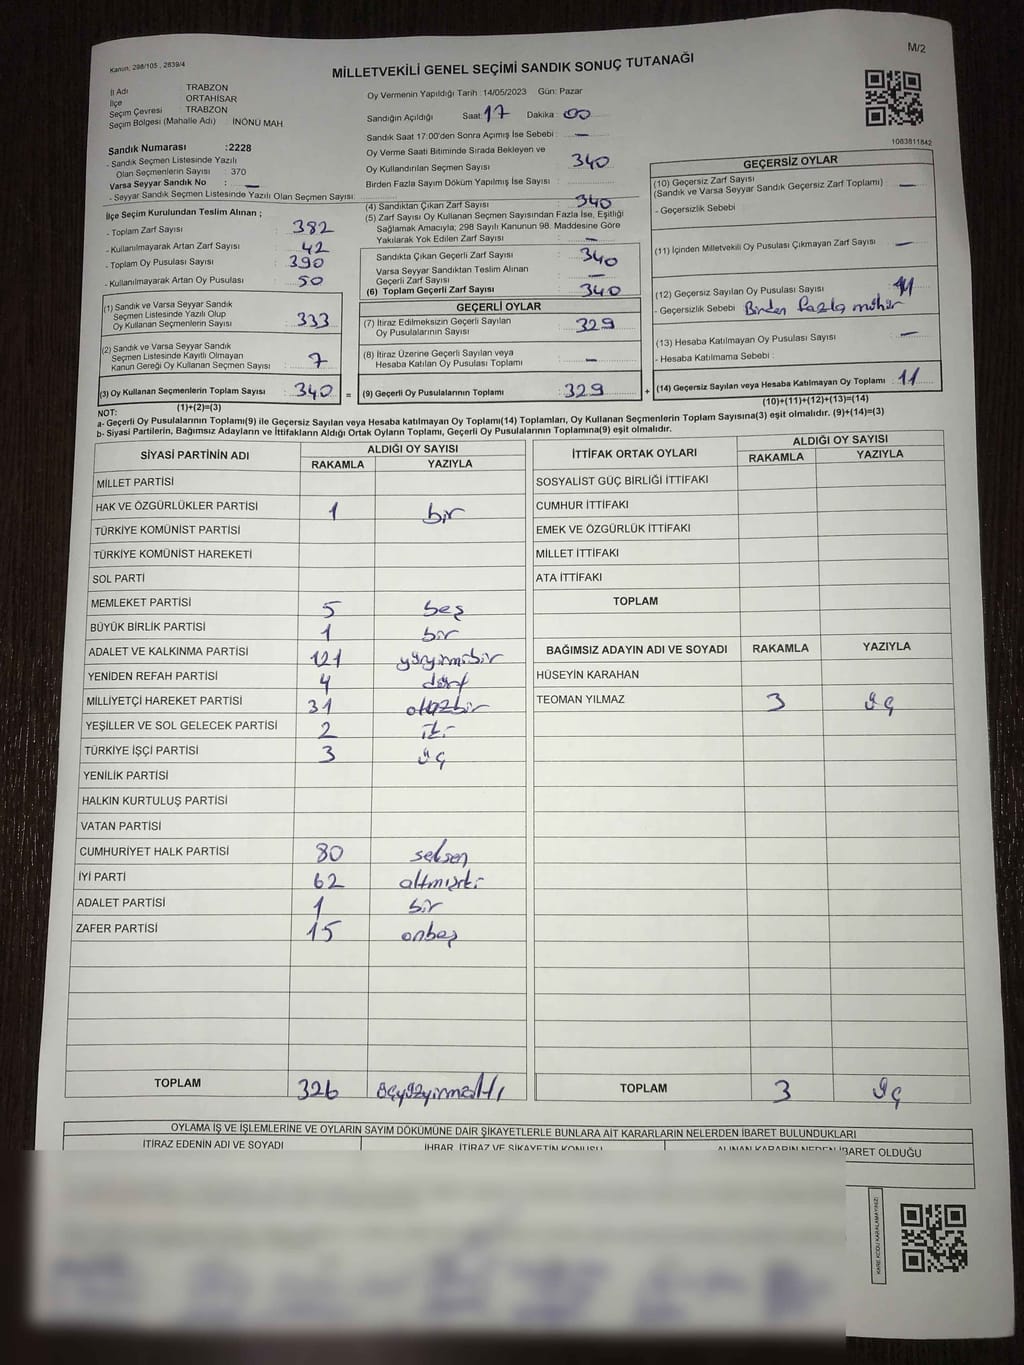 M/2
Kanun, 298/105 , 2839/4
MİLLETVEKİLİ GENEL SEÇİMİ SANDIK SONUÇ TUTANAĞI
İl Adı TRABZON
İlçe ORTAHİSAR
Seçim Çevresi TRABZON
Seçim Bölgesi (Mahalle Adı) : İNÖNÜ MAH.
Sandık Numarası :2228
- Sandık Seçmen Listesinde Yazılı
Olan Seçmenlerin Sayısı : 370
Varsa Seyyar Sandık No : —
- Seyyar Sandık Seçmen Listesinde Yazılı Olan Seçmen Sayısı:
İlçe Seçim Kurulundan Teslim Alınan ;
- Toplam Zarf Sayısı : 382
- Kullanılmayarak Artan Zarf Sayısı : 42
- Toplam Oy Pusulası Sayısı : 390
- Kullanılmayarak Artan Oy Pusulası : 50
(1) Sandık ve Varsa Seyyar Sandık
Seçmen Listesinde Yazılı Olup
Oy Kullanan Seçmenlerin Sayısı : 333
(2) Sandık ve Varsa Seyyar Sandık
Seçmen Listesinde Kayıtlı Olmayan
Kanun Gereği Oy Kullanan Seçmen Sayısı : 7
(3) Oy Kullanan Seçmenlerin Toplam Sayısı : 340 =
(1)+(2)=(3)
Oy Vermenin Yapıldığı Tarih : 14/05/2023 Gün: Pazar
Sandığın Açıldığı Saat : 17 Dakika : 00
Sandık Saat 17:00'den Sonra Açımış İse Sebebi : —
Oy Verme Saati Bitiminde Sırada Bekleyen ve
Oy Kullandırılan Seçmen Sayısı : 340
Birden Fazla Sayım Döküm Yapılmış İse Sayısı :
(4) Sandıktan Çıkan Zarf Sayısı : 340
(5) Zarf Sayısı Oy Kullanan Seçmen Sayısından Fazla İse, Eşitliği
Sağlamak Amacıyla; 298 Sayılı Kanunun 98. Maddesine Göre
Yakılarak Yok Edilen Zarf Sayısı : —
Sandıkta Çıkan Geçerli Zarf Sayısı : 340
Varsa Seyyar Sandıktan Teslim Alınan
Geçerli Zarf Sayısı : —
(6) Toplam Geçerli Zarf Sayısı : 340
GEÇERLİ OYLAR
(7) İtiraz Edilmeksizin Geçerli Sayılan
Oy Pusulalarının Sayısı : 329
(8) İtiraz Üzerine Geçerli Sayılan veya
Hesaba Katılan Oy Pusulası Toplamı : —
(9) Geçerli Oy Pusulalarının Toplamı : 329 +
1083811842
GEÇERSİZ OYLAR
(10) Geçersiz Zarf Sayısı
(Sandık ve Varsa Seyyar Sandık Geçersiz Zarf Toplamı) : —
- Geçersizlik Sebebi :
(11) İçinden Milletvekili Oy Pusulası Çıkmayan Zarf Sayısı : —
(12) Geçersiz Sayılan Oy Pusulası Sayısı : 11
- Geçersizlik Sebebi : Birden fazla mühür
(13) Hesaba Katılmayan Oy Pusulası Sayısı : —
- Hesaba Katılmama Sebebi :
(14) Geçersiz Sayılan veya Hesaba Katılmayan Oy Toplamı : 11
(10)+(11)+(12)+(13)=(14)
NOT:
a- Geçerli Oy Pusulalarının Toplamı(9) ile Geçersiz Sayılan veya Hesaba katılmayan Oy Toplamı(14) Toplamları, Oy Kullanan Seçmenlerin Toplam Sayısına(3) eşit olmalıdır. (9)+(14)=(3)
b- Siyasi Partilerin, Bağımsız Adayların ve İttifakların Aldığı Ortak Oyların Toplamı, Geçerli Oy Pusulalarının Toplamına(9) eşit olmalıdır.
SİYASİ PARTİNİN ADI ALDIĞI OY SAYISI
RAKAMLA YAZIYLA
MİLLET PARTİSİ
HAK VE ÖZGÜRLÜKLER PARTİSİ 1 bir
TÜRKİYE KOMÜNİST PARTİSİ
TÜRKİYE KOMÜNİST HAREKETİ
SOL PARTİ
MEMLEKET PARTİSİ 5 beş
BÜYÜK BİRLİK PARTİSİ 1 bir
ADALET VE KALKINMA PARTİSİ 121 yüzyirmibir
YENİDEN REFAH PARTİSİ 4 dört
MİLLİYETÇİ HAREKET PARTİSİ 31 otuzbir
YEŞİLLER VE SOL GELECEK PARTİSİ 2 iki
TÜRKİYE İŞÇİ PARTİSİ 3 üç
YENİLİK PARTİSİ
HALKIN KURTULUŞ PARTİSİ
VATAN PARTİSİ
CUMHURİYET HALK PARTİSİ 80 seksen
İYİ PARTİ 62 altmışiki
ADALET PARTİSİ 1 bir
ZAFER PARTİSİ 15 onbeş
TOPLAM 326 üçyüzyirmialtı
İTTİFAK ORTAK OYLARI ALDIĞI OY SAYISI
RAKAMLA YAZIYLA
SOSYALİST GÜÇ BİRLİĞİ İTTİFAKI
CUMHUR İTTİFAKI
EMEK VE ÖZGÜRLÜK İTTİFAKI
MİLLET İTTİFAKI
ATA İTTİFAKI
TOPLAM
BAĞIMSIZ ADAYIN ADI VE SOYADI RAKAMLA YAZIYLA
HÜSEYİN KARAHAN
TEOMAN YILMAZ 3 üç
TOPLAM 3 üç
OYLAMA İŞ VE İŞLEMLERİNE VE OYLARIN SAYIM DÖKÜMÜNE DAİR ŞİKAYETLERLE BUNLARA AİT KARARLARIN NELERDEN İBARET BULUNDUKLARI
İTİRAZ EDENİN ADI VE SOYADI İHBAR, İTİRAZ VE ŞİKAYETİN KONUSU ALINAN KARARIN NEDEN İBARET OLDUĞU
KARE KODU KARALAMAYINIZ!